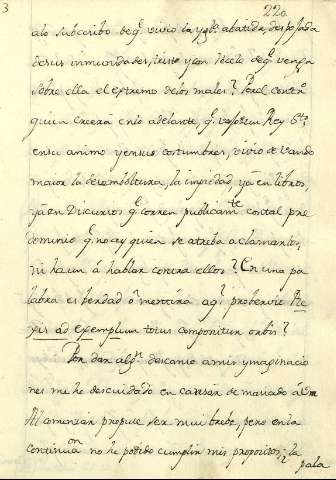 3
220
alo subcribo de q.e vivio la Ygl.a abatida, despojada
de sus inmunidades, triste y con recelo de q.e venga
sobre ella el extremo de los males? Por el contr.o
quien creerá en lo adelante, q.e vaso un Rey S.to
en su animo y en sus costumbres, vivio
maior la desemboltura, la impiedad, yá en libros,
yá en Discursos q.e corren publicam.te con tal pre
dominio q.e no ay quien se atreba a clamarlos,
ni haun á hablar contra ellos? En una pa
labra es berdad ô mentira aq.l proberbio Re
gis ad exemplum totus componitur orbis?
Por dar alg.n descanso a mis ymaginacio
nes me he descuidado en cansar de masiado á Vm
Al comenzar propuse ser mui brebe, pero en la
continua.on no he podido cumplir mis propositos; la
pala